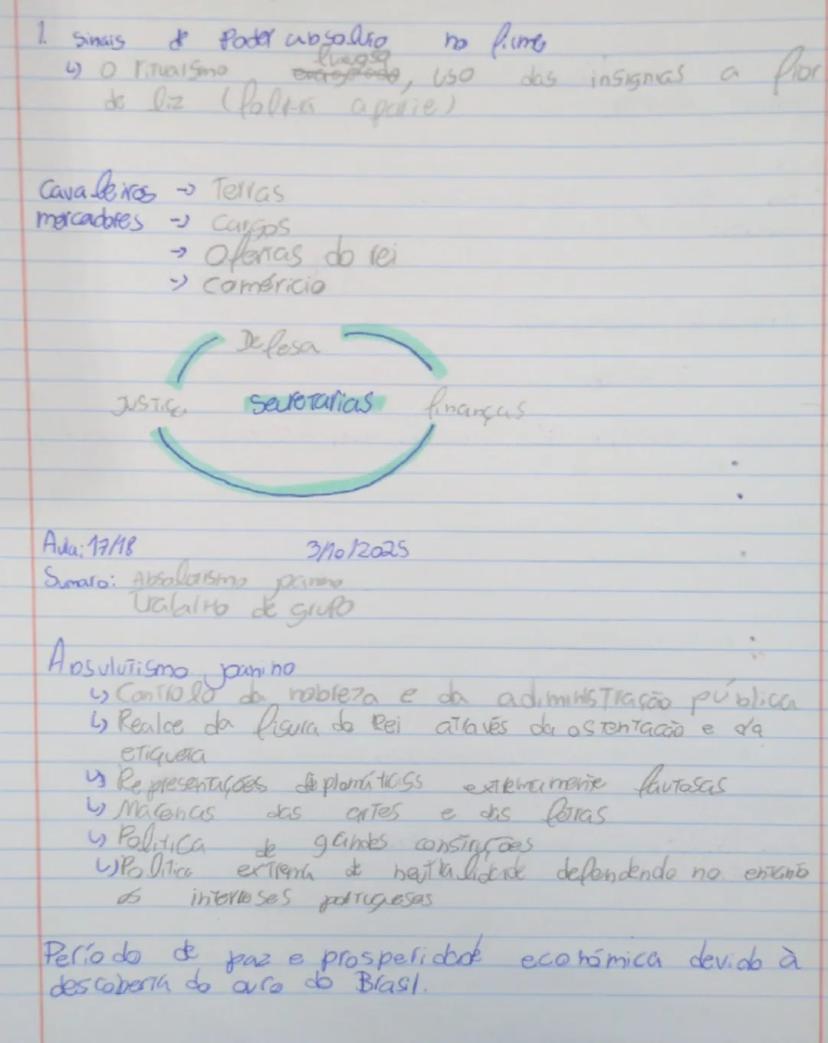 1. Sinais de Poder absoluto no filme
↳ O ritualismo luxuoso, uso das insignias a flor
de liz (Folha aparte)
Cavaleiros → Terras
mercadores → Cargos
→ Ofertas do rei
→ Coméricio
Defesa
Justiça secretarias finanças
Aula: 17/18 3/10/2025
Sumaro: Absolutismo joanino
Trabalho de grupo
Absulutismo joanino
↳ Controlo da nobleza e da administração pública
↳ Realce da figura do Rei através da ostentação e da
etiqueta
↳ Representações diplomáticas extremamente faustosas
↳ Mácenas das artes e das letras
↳ Politica de grandes construções
↳ Politica externa de neutralidade defendendo no entanto
os interesses portugueses
Período de paz e prosperidade económica devido à
descoberta do ouro do Brasil.